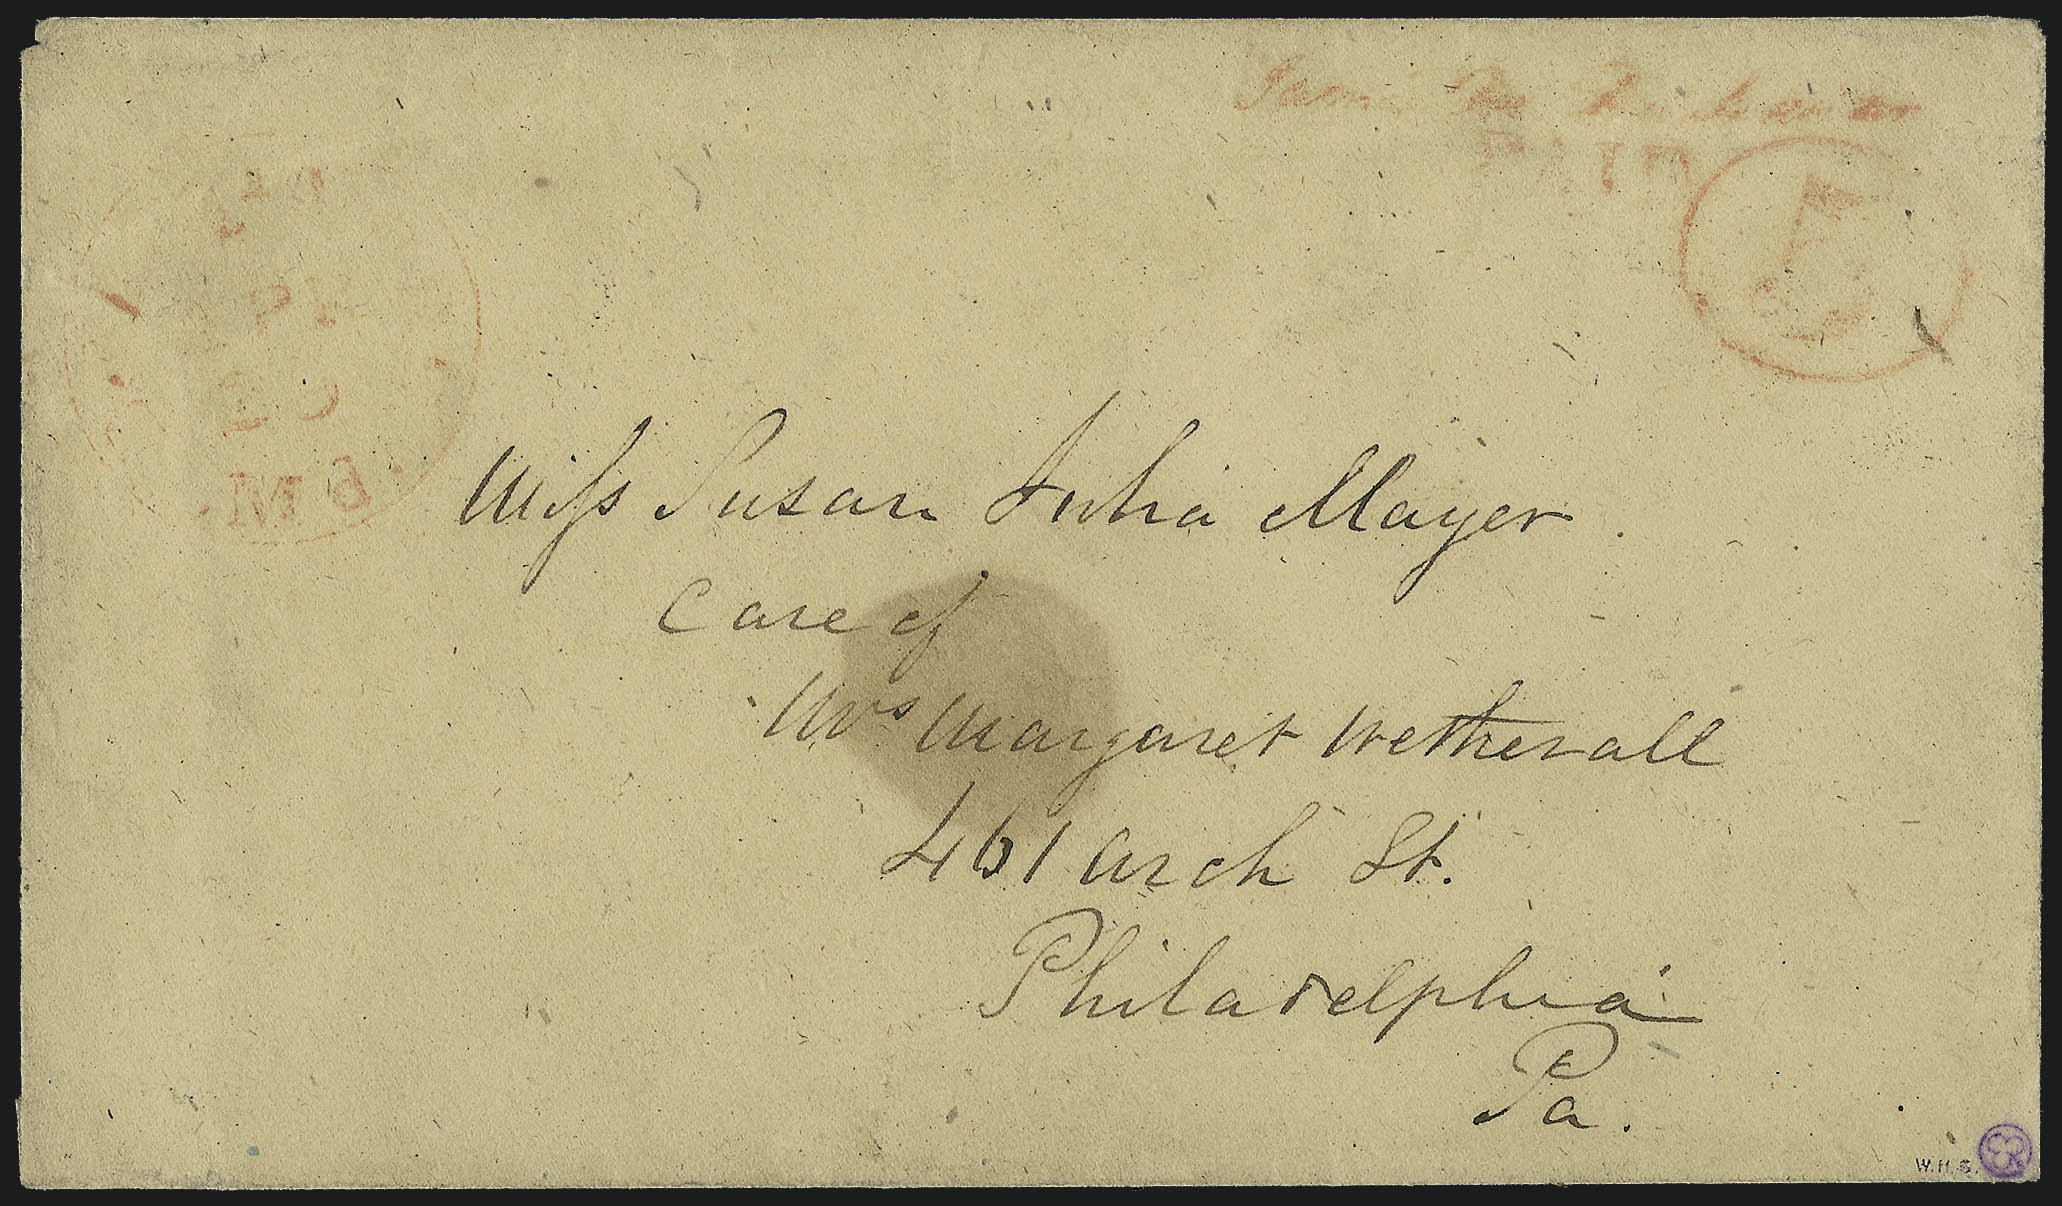 PAID
5
Miss Susan Julia Mayer.
Care of
Mrs Margaret Wetherall
461 Arch St.
Philadelphia
Pa.
W.H.S.